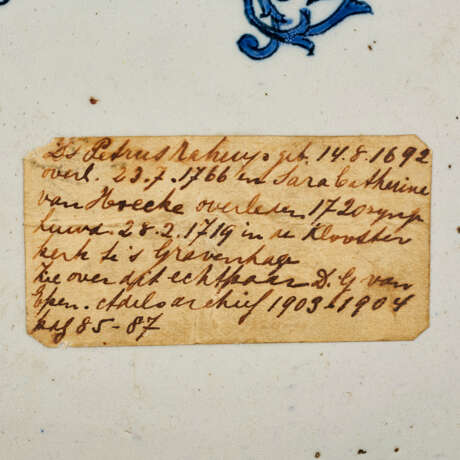 Ds Petrus Rahuys geb. 14.8.1692
overl. 23.7.1766 en Sara Catherine
van Hoecke overleden 1720 zyn ge
huwd 28.2.1719 in de Klooster
kerk te 's Gravenhage
zie over dit echtpaar D. G van
Epen. Adelsarchief 1903-1904
pag 85-87